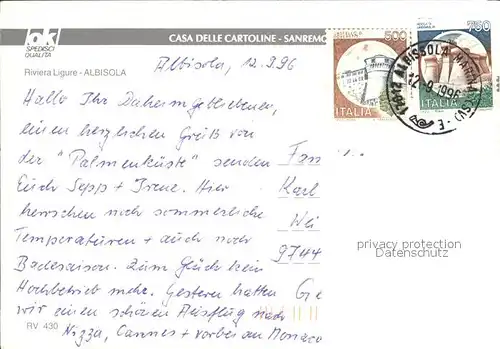 ok
SPEDISCI
QUALITÀ
CASA DELLE CARTOLINE - SANREMO
Riviera Ligure - ALBISOLA
500
ITALIA
750
ITALIA
17012 ALBISSOLA MARINA (SV)
12-9-1996
Albisola, 12.9.96
Hallo Ihr Daheimgebliebenen,
einen herzlichen Gruß von
der "Palmenküste" senden
Euch Sepp + Irene. Hier
herrschen noch sommerliche
Temperaturen + auch noch
Badesaison. Zum Glück kein
Hochbetrieb mehr. Gestern hatten
wir einen schönen Ausflug nach
Nizza, Cannes + vorbei an Monaco
Fam
Karl
Wei
9744
Ge
privacy protection
Datenschutz
RV 430